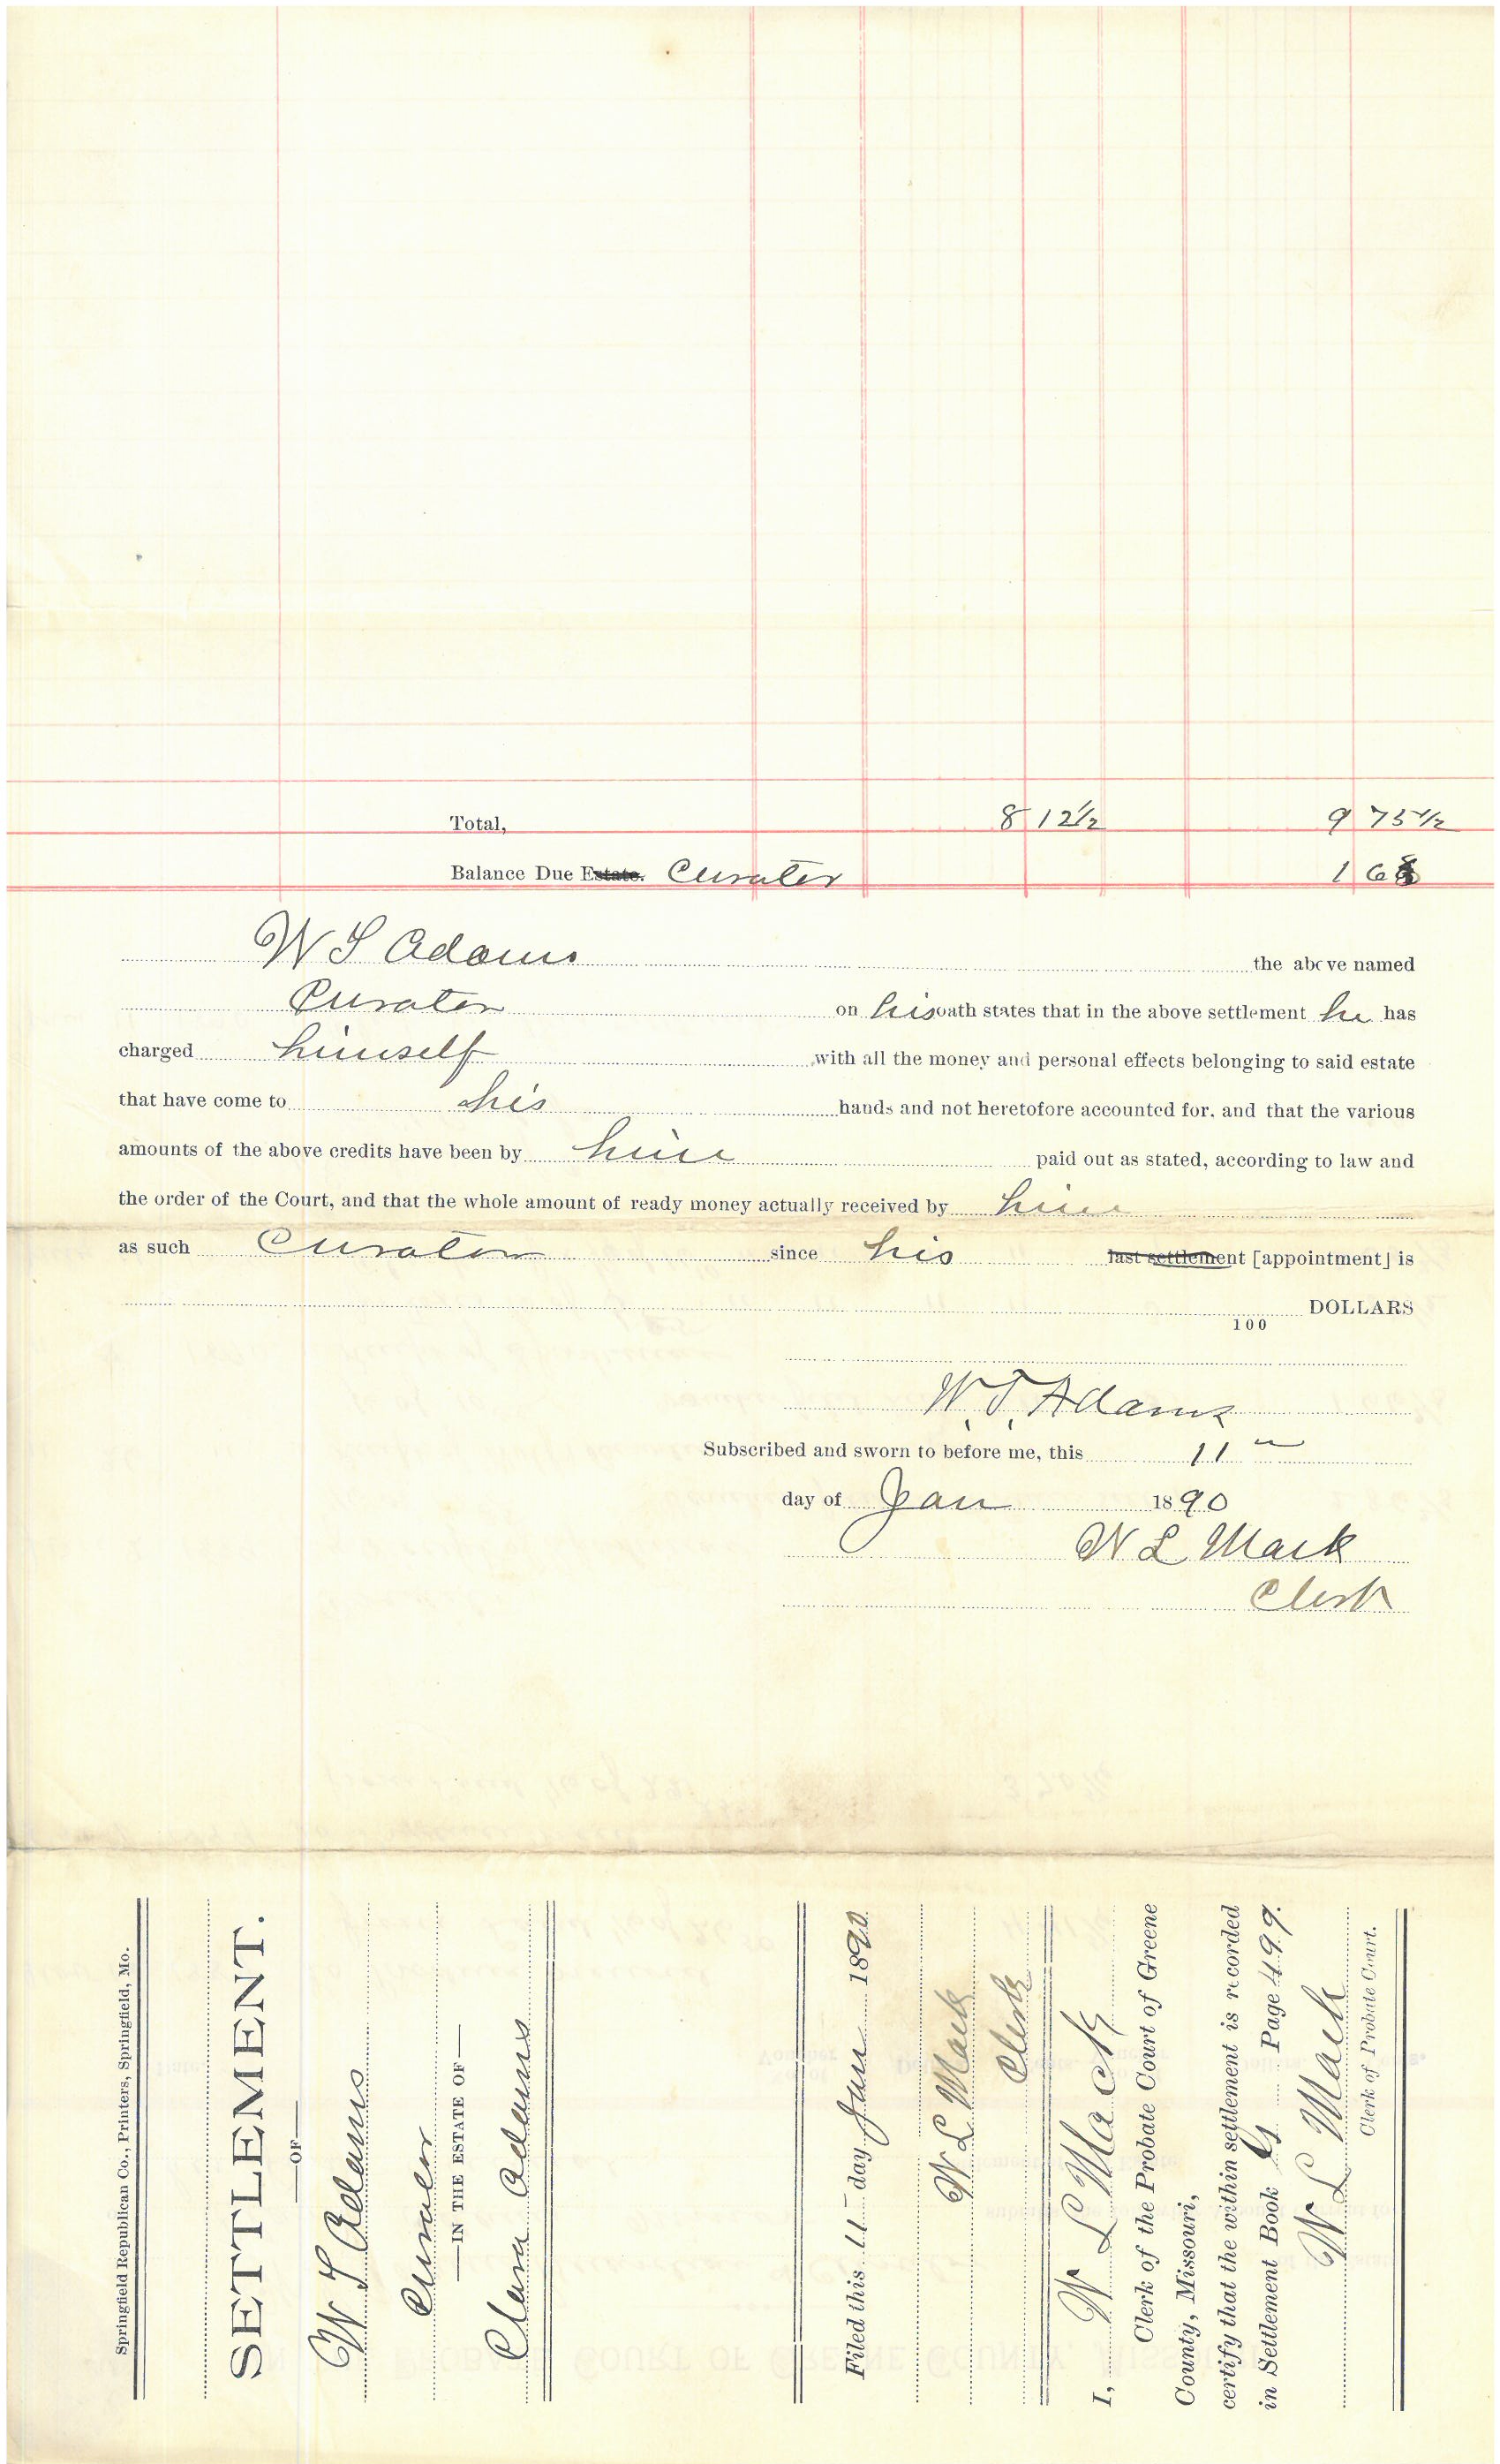 Total, 8 12½ 9 75½
Balance Due Estate. Curator 1 63
W S Adams the above named
Curator on his oath states that in the above settlement he has
charged himself with all the money and personal effects belonging to said estate
that have come to his hands and not heretofore accounted for, and that the various
amounts of the above credits have been by him paid out as stated, according to law and
the order of the Court, and that the whole amount of ready money actually received by him
as such Curator since his last settlement [appointment] is
DOLLARS
100
W. S. Adams
Subscribed and sworn to before me, this 11
day of Jan 1890
W L Mack
Clerk
Springfield Republican Co., Printers, Springfield, Mo.
SETTLEMENT.
—OF—
W S Adams
Curator
—IN THE ESTATE OF—
Clara Adams
Filed this 11 day Jan 1890
W L Mack
Clerk
I, W L Mack
Clerk of the Probate Court of Greene
County, Missouri,
certify that the within settlement is recorded
in Settlement Book G Page 499.
W L Mack
Clerk of Probate Court.